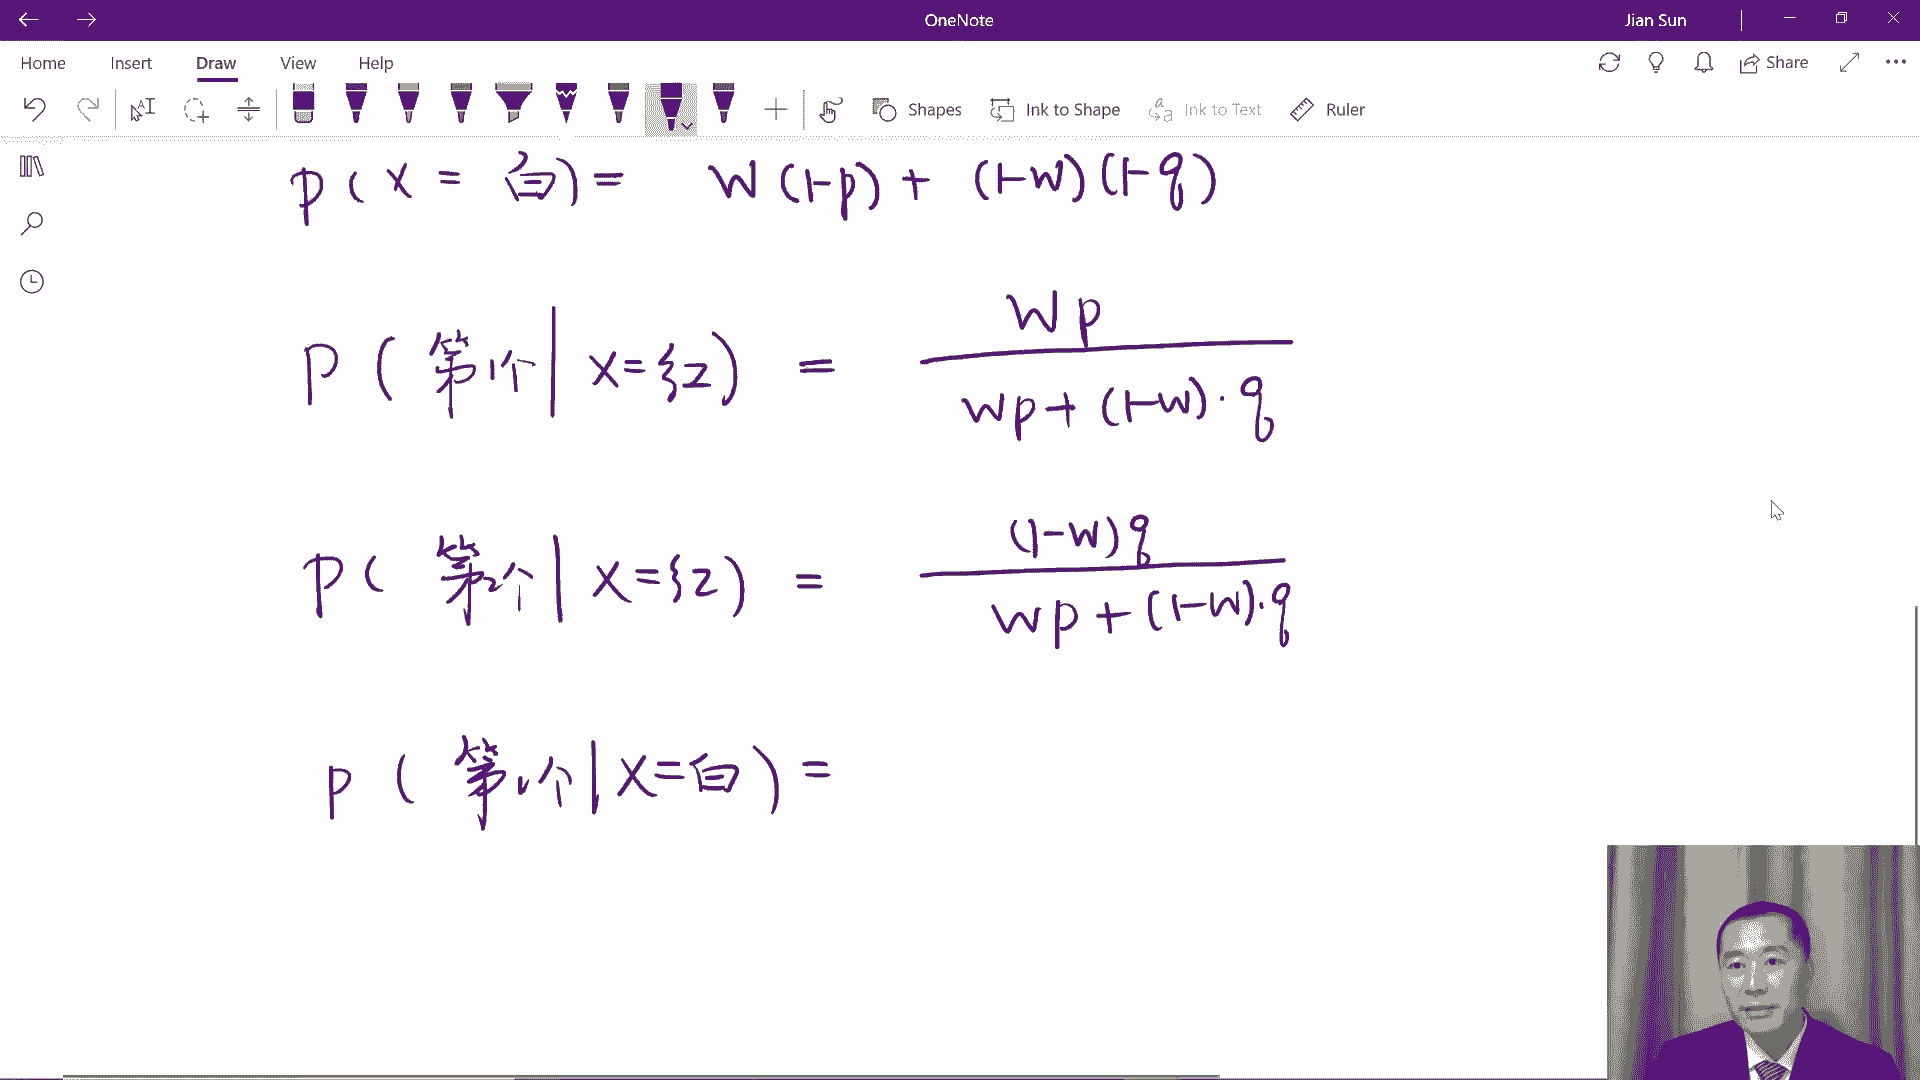 OneNote
Jian Sun
Home Insert Draw View Help
Share
Shapes Ink to Shape Ink to Text Ruler
p(x=白)= w(1-p)+(1-w)(1-q)
wp
P(第1个|x=红)=
wp+(1-w)·q
(1-w)q
P(第2个|x=红)=
wp+(1-w)·q
p(第1个|x=白)=